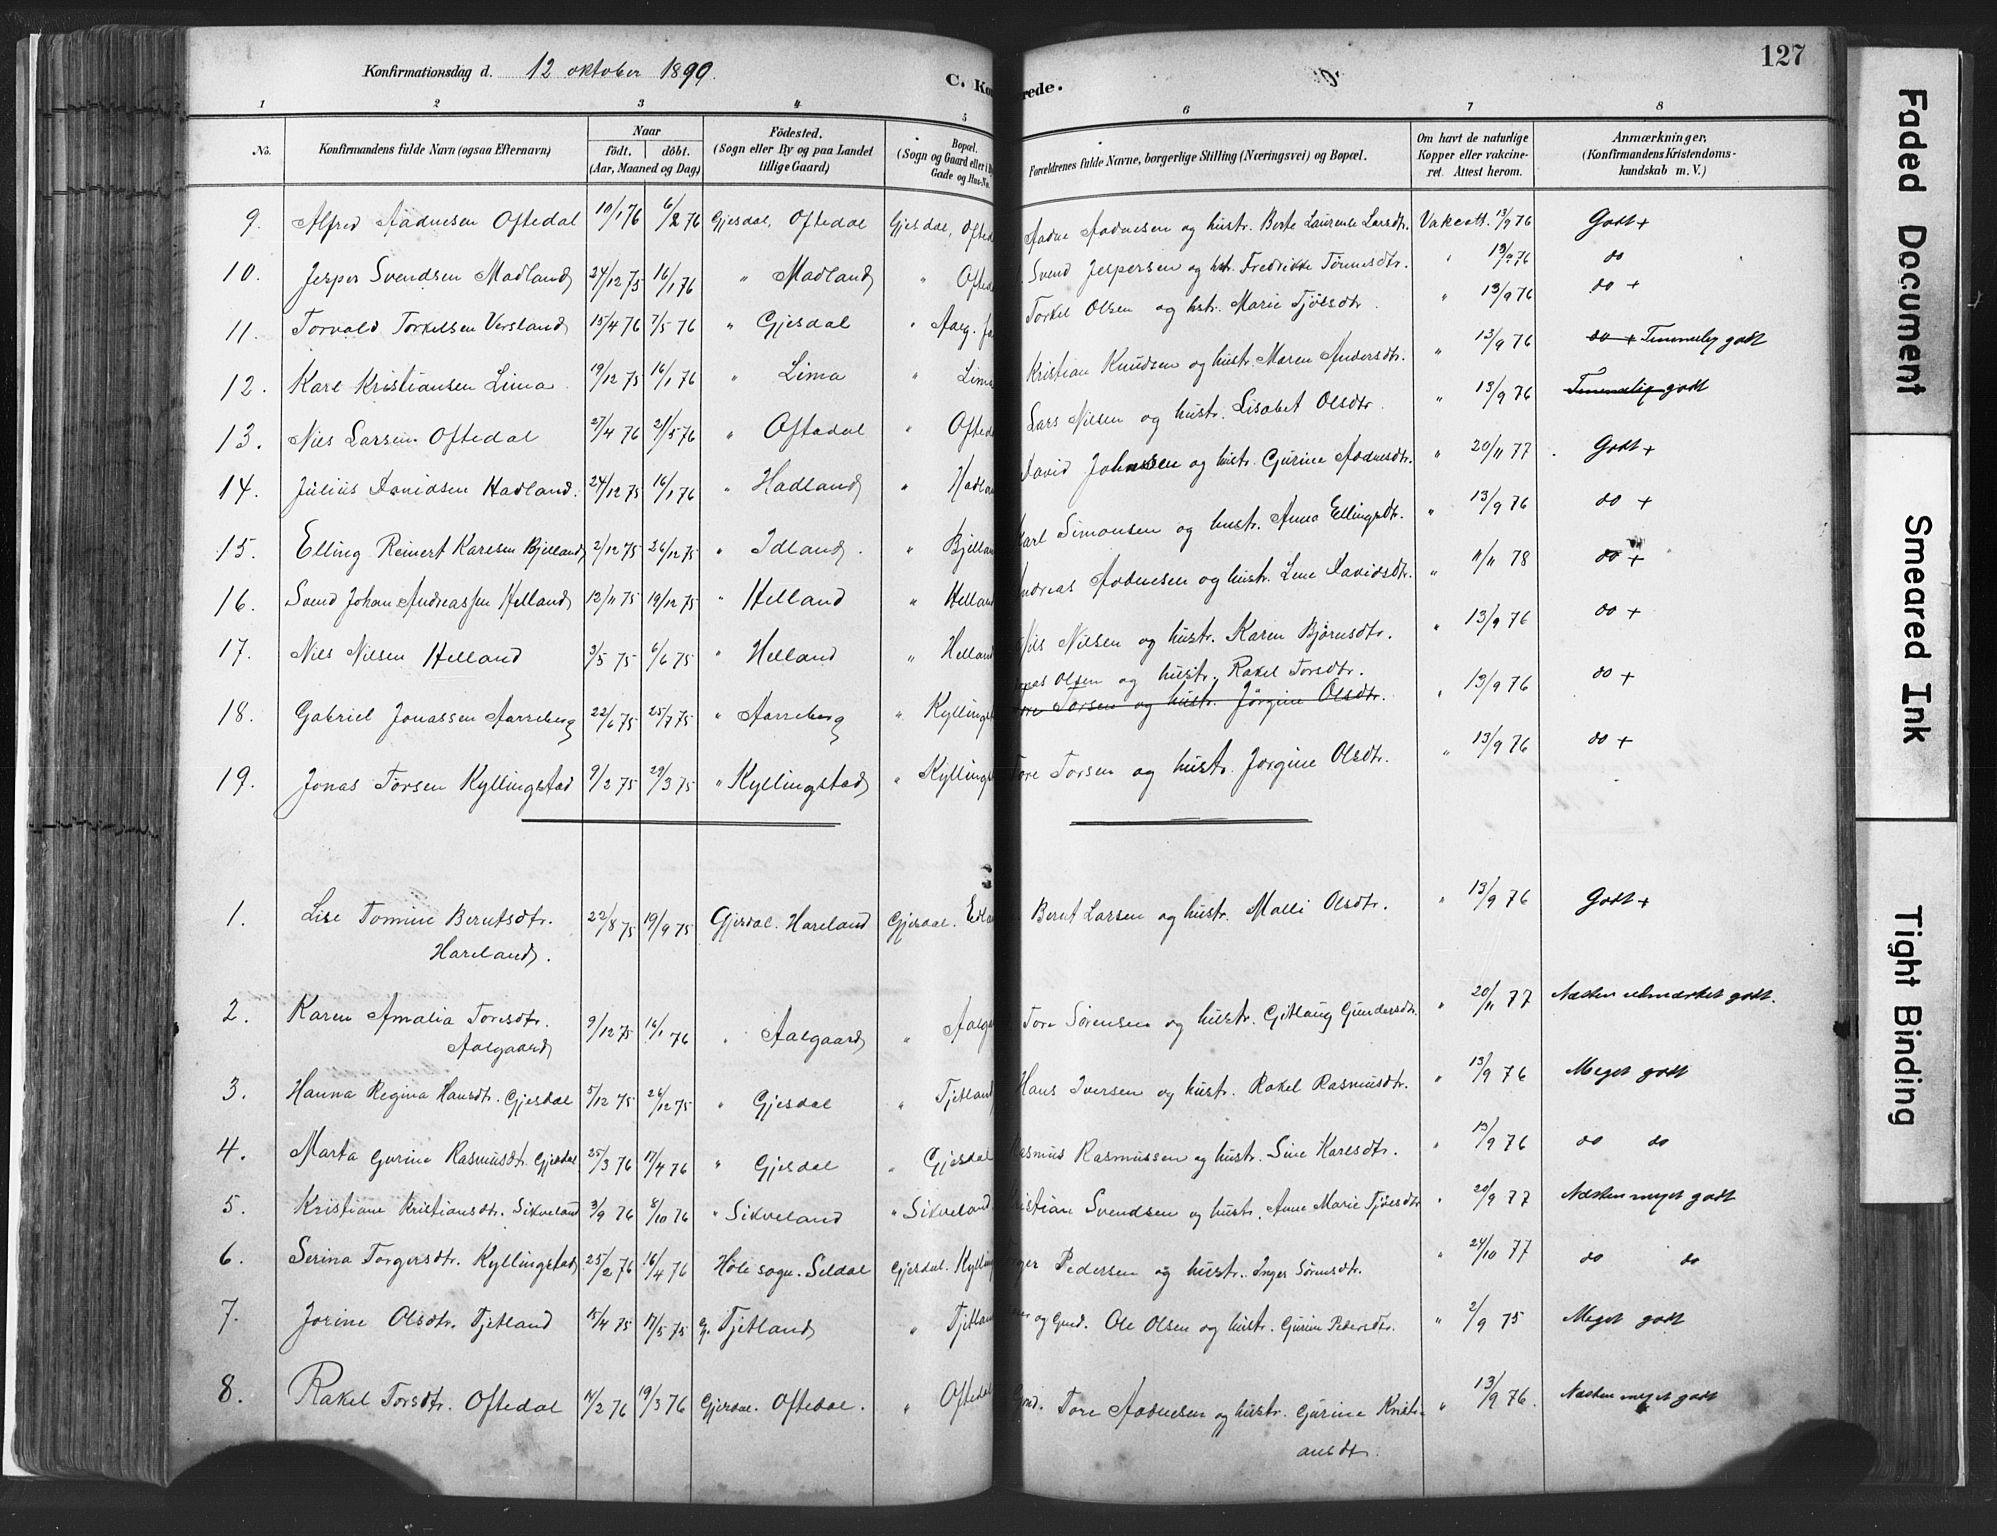 Konfirmationsdag d. 12 oktober 1890. C. Kon rede. 127
1 2 3 4 5 6 7 8
No. Konfirmandens fulde Navn (ogsaa Efternavn) Naar födt. döbt. (Aar, Maaned og Dag) Födested. (Sogn eller By og paa Landet tillige Gaard) Bopæl. (Sogn og Gaard eller i B Gade og Hus-No. Forældrenes fulde Navne, borgerlige Stilling (Næringsvei) og Bopæl. Om havt de naturlige Kopper eller vakcineret. Attest herom. Anmærkninger, (Konfirmandens Kristendomskundskab m. V.)
9. Alfred Aadnesen Oftedal 10/1 76 6/2 76 Gjesdal, Oftedal Gjesdal, Ofted Aadne Aadnesen og hustr. Berte Laurense Larsdtr. Vakcatt. 13/9 76 Godt +
10. Jesper Svendsen Madland 24/12 75 16/1 76 " Madland " Ofted Svend Jespersen og hstr. Fredrikke Tönnesdtr. " 13/9 76 do
11. Torvald Torkelsen Versland 15/4 76 7/5 76 " Gjesdal " Aalg. fa Torkel Olsen og hstr. Marie Tjölsdtr. " 13/9 76 do +
12. Karl Kristiansen Lima 19/12 75 16/1 76 " Lima " Lima Kristian Knudsen og hustr. Maren Andersdtr. " 13/9 76 do + Temmelig godt
13. Nils Larsen Oftedal 2/4 76 21/5 76 " Oftedal " Ofted Lars Nilsen og hustr. Lisabet Olsdtr. " 13/9 76 Temmelig godt
14. Julius Davidsen Hadland. 24/12 75 16/1 76 " Hadland " Hadlan David Johnsen og hustr. Gurine Aadnesdtr. " 20/11 77 Godt +
15. Elling Reinert Karlsen Bjelland 2/12 75 26/12 75 " Idland. " Bjellan Karl Simonsen og hustr. Anna Ellingsdtr. " 13/9 76 do +
16. Svend Johan Andreassen Helland 12/11 75 19/12 75 " Helland " Helland Andreas Aadnesen og hustr. Lene Davidsdtr. " 11/11 78 do +
17. Nils Nilsen Helland 3/5 75 6/6 75 " Helland " Helland Nils Nilsen og hustr. Karen Bjørnsdtr. " 13/9 76 do +
onas Olsen og hustr. Rakel Torsdtr.
18. Gabriel Jonassen Aarreberg 22/6 75 25/7 75 " Aarreberg " Kyllings ore Torsen og hustr. Jörgine Olsdtr. " 13/9 76 do +
19. Jonas Torsen Kyllingstad 9/2 75 29/3 75 " Kyllingstad " Kyllings Tore Torsen og hustr. Jörgine Olsdtr. " 13/9 76 do +
1. Lise Tomine Berntsdtr. Hareland. 22/8 75 19/9 75 Gjesdal. Hareland Gjesdal. Edla Bernt Larsen og hustr. Malli Olsdtr. " 13/9 76 Godt +
2. Karen Amalia Toresdtr. Aalgaard 9/12 75 16/1 76 " Aalgaard " Aalga Tore Sörensen og hustr. Gitlaug Gundersdtr. " 20/11 77 Næsten udmærket godt.
3. Hanna Regina Hansdtr. Gjesdal 5/12 75 26/12 75 " Gjesdal " Tjetland Hans Iversen og hustr. Rakel Rasmusdtr. " 13/9 76 Meget godt
4. Marta Gurine Rasmusdtr. Gjesdal 25/3 76 17/4 76 " Gjesdal " Gjesdal Rasmus Rasmussen og hustr. Sine Karlsdtr. " 13/9 76 do do
5. Kristiane Kristiansdtr. Sikveland 3/9 76 8/10 76 " Sikveland " Sikveland Kristian Svendsen og hustr. Anne Marie Tjölsdtr " 20/9 77 Næsten meget godt
6. Serina Torgersdtr. Kyllingstad 25/2 76 16/4 76 Höle sogn. Seldal Gjesdal. Kylling rger Pedersen og hustr. Inger Sörensdtr. " 24/10 77 do do
7. Jorine Olsdtr. Tjetland 15/4 75 17/5 75 G. Tjetland " Tjetlan og Gmd. Ole Olsen og hustr. Gurine Pedersdtr. " 2/9 75 Meget godt
8. Rakel Torsdtr. Oftedal 4/2 76 19/3 76 Gjesdal. Oftedal. " Oftedal Gmd. Tore Aadnesen og hustr. Gurine Kristiansdtr. " 13/9 76. Næsten meget godt
Faded Document
Smeared Ink
Tight Binding